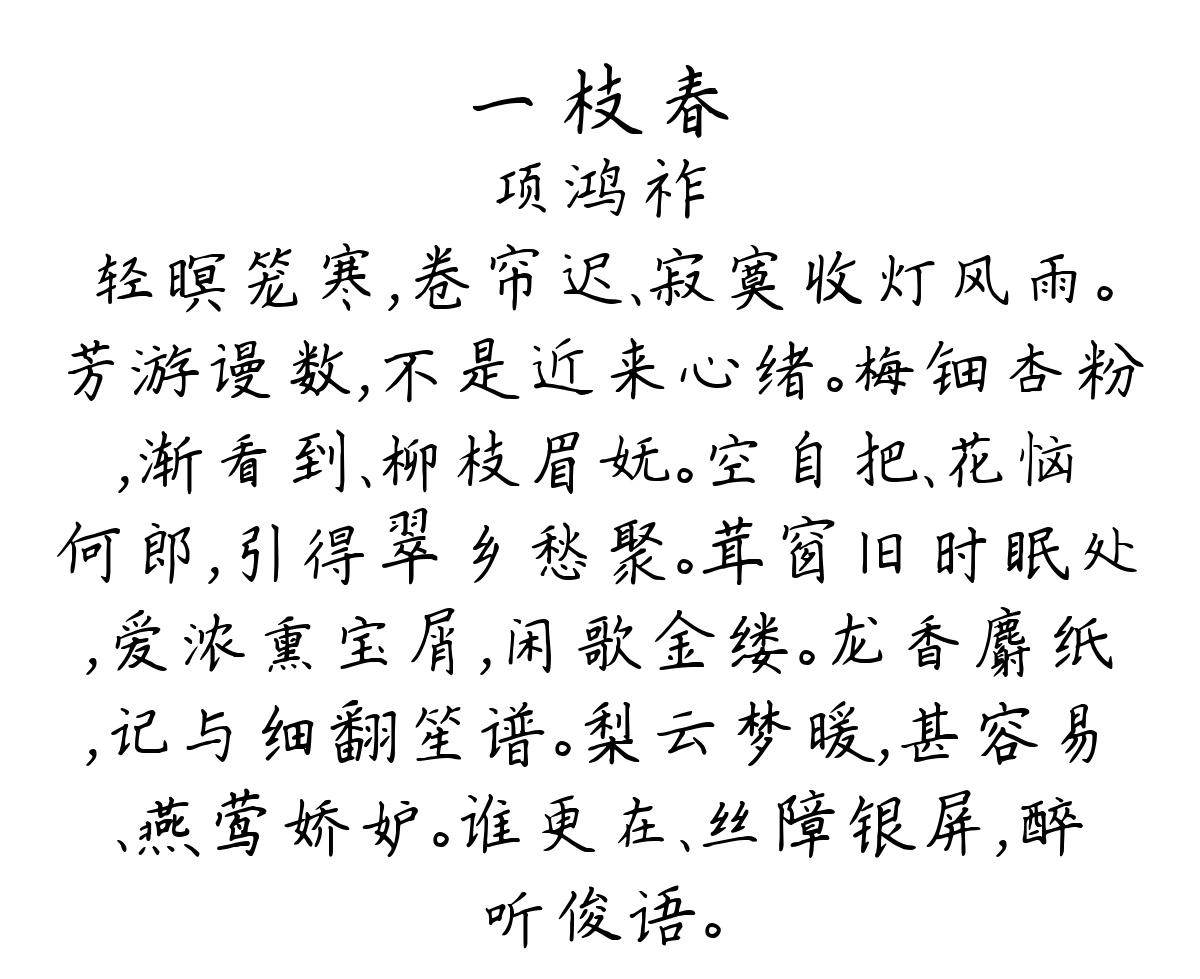 一枝春
项鸿祚
轻暝笼寒,卷帘迟、寂寞收灯风雨。
芳游谩数,不是近来心绪。梅钿杏粉
,渐看到、柳枝眉妩。空自把、花恼
何郎,引得翠乡愁聚。茸窗旧时眠处
,爱浓熏宝屑,闲歌金缕。龙香麝纸
,记与细翻笙谱。梨云梦暖,甚容易
、燕莺娇妒。谁更在、丝障银屏,醉
听俊语。